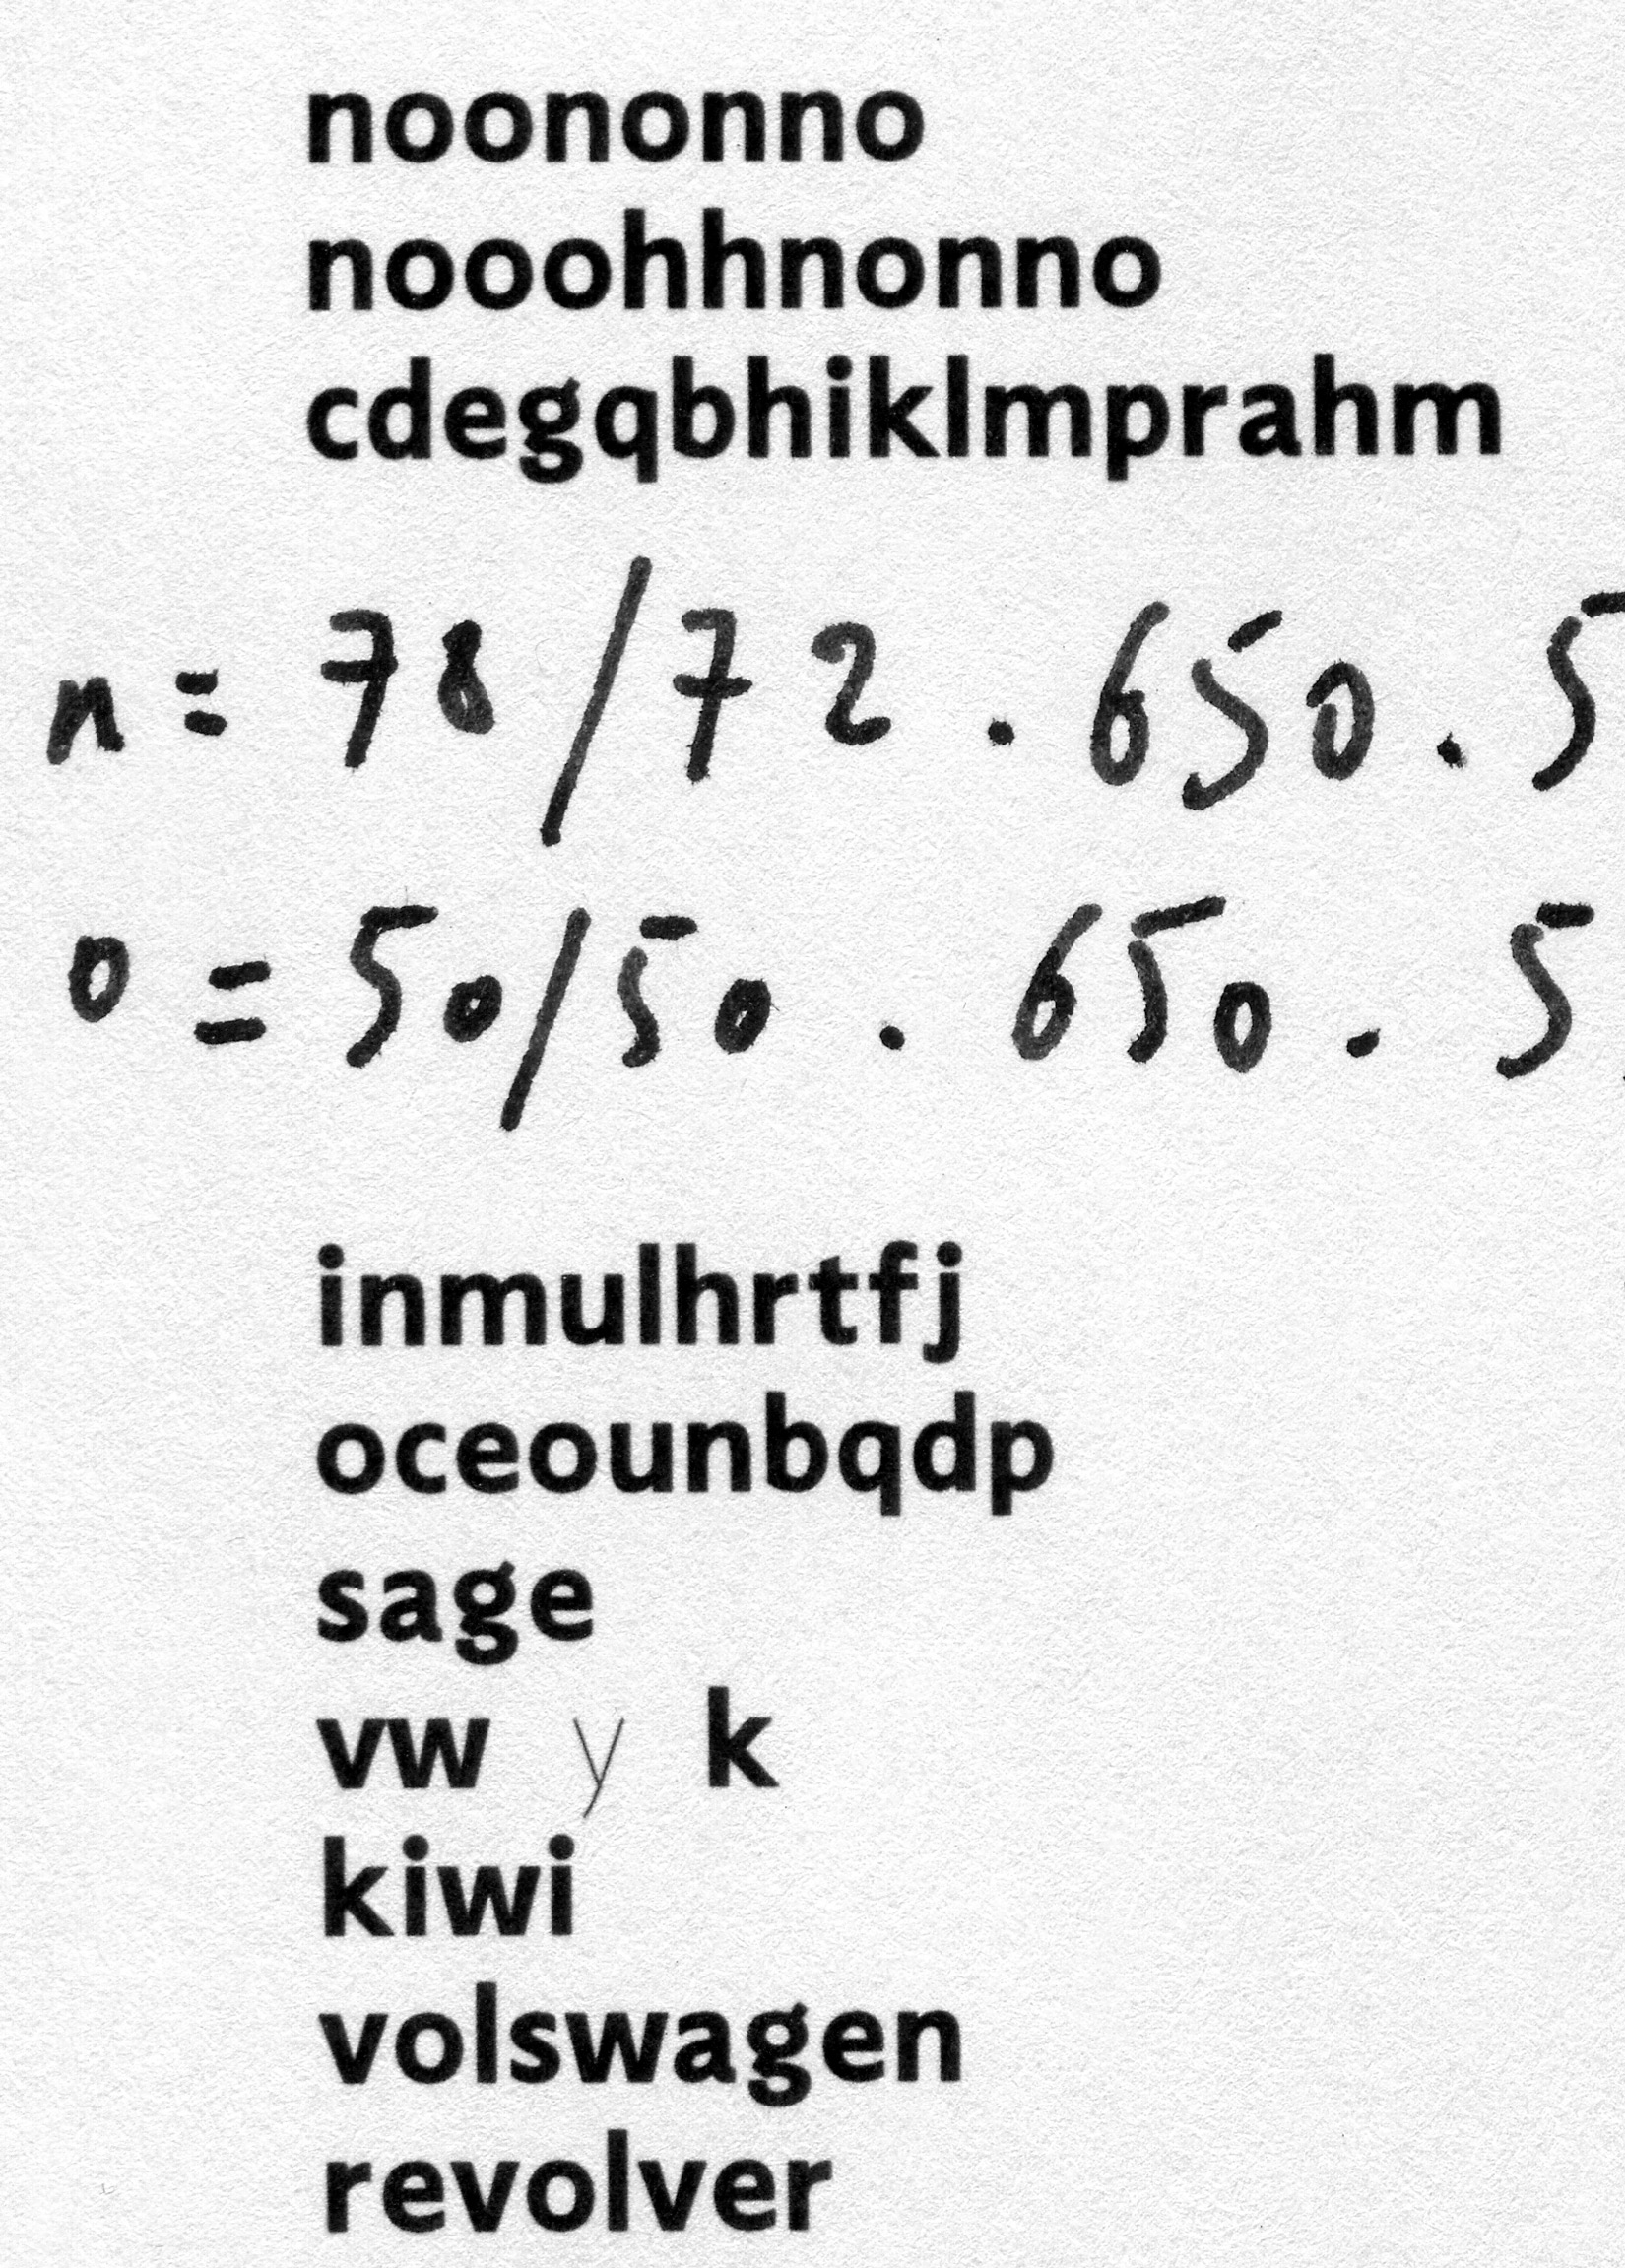 noononno
nooohhnonno
cdegqbhiklmprahm
n = 78/72 . 650 . 5
o = 50/50 . 650 . 5
inmulhrtfj
oceounbqdp
sage
vw y k
kiwi
volswagen
revolver